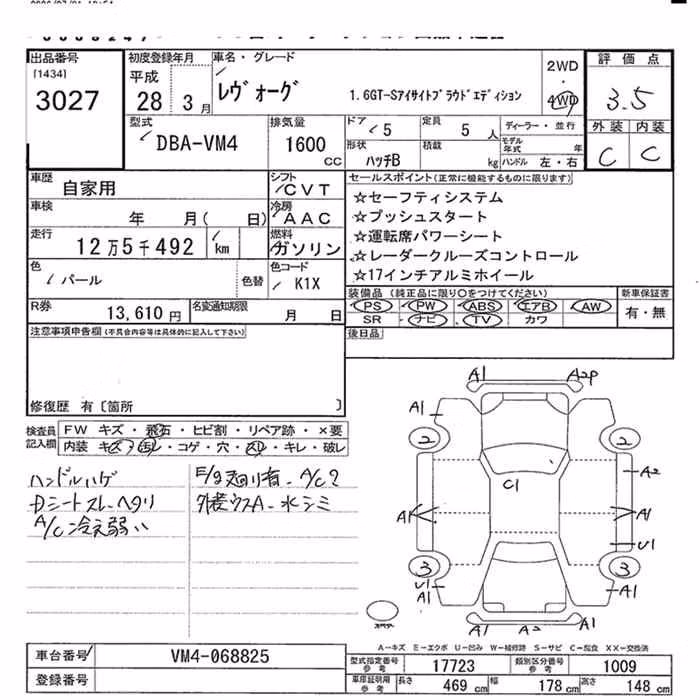 出品番号
[1434]
3027
初度登録年月
平成
28 3月
車名・グレード
レヴォーグ
1.6GT-Sアイサイトプラウドエディション
2WD
・
4WD
評価点
3.5
外装 内装
C C
型式
DBA-VM4
排気量
1600
CC
ドア
5
定員
5 人
ディーラー・並行
形状
ハッチB
積載
kg
モデル年式
年
ハンドル 左・右
車歴
自家用
シフト
CVT
車検
年 月( 日)
冷房
AAC
走行
12万5千492 km
燃料
ガソリン
色
パール
色替
色コード
K1X
R券
13,610円
名変通知期限
月 日
セールスポイント(正常に機能するものに限ります)
☆セーフティシステム
☆プッシュスタート
☆運転席パワーシート
☆レーダークルーズコントロール
☆17インチアルミホイール
装備品 (純正品に限り○をつけてください)
PS PW ABS エアB AW
SR ナビ TV カワ
新車保証書
有・無
注意事項申告欄(不具合内容等は具体的に記入して下さい)
後日品
修復歴 有〔箇所 〕
検査員
記入欄
FW キズ・飛石・ヒビ割・リペア跡・×要
内装 キズ・汚レ・コゲ・穴・スリ・キレ・破レ
ハンドルハゲ
Dシートスレ・ヘタリ
A/C冷え弱い
E/g廻り有・A/C?
外装ウスA・水シミ
A1 A2P
A1
2 2
A2
C1
A1 A1
U1
3 3
U1
A1 A1
A1 A2 A1
A-キズ E-エクボ U-凹み W-補修跡 S-サビ C-腐食 XX-交換済
車台番号
VM4-068825
登録番号
型式指定番号
参考
17723
類別区分番号
参考
1009
車庫証明用
参考
長さ 469 cm
幅 178 cm
高さ 148 cm